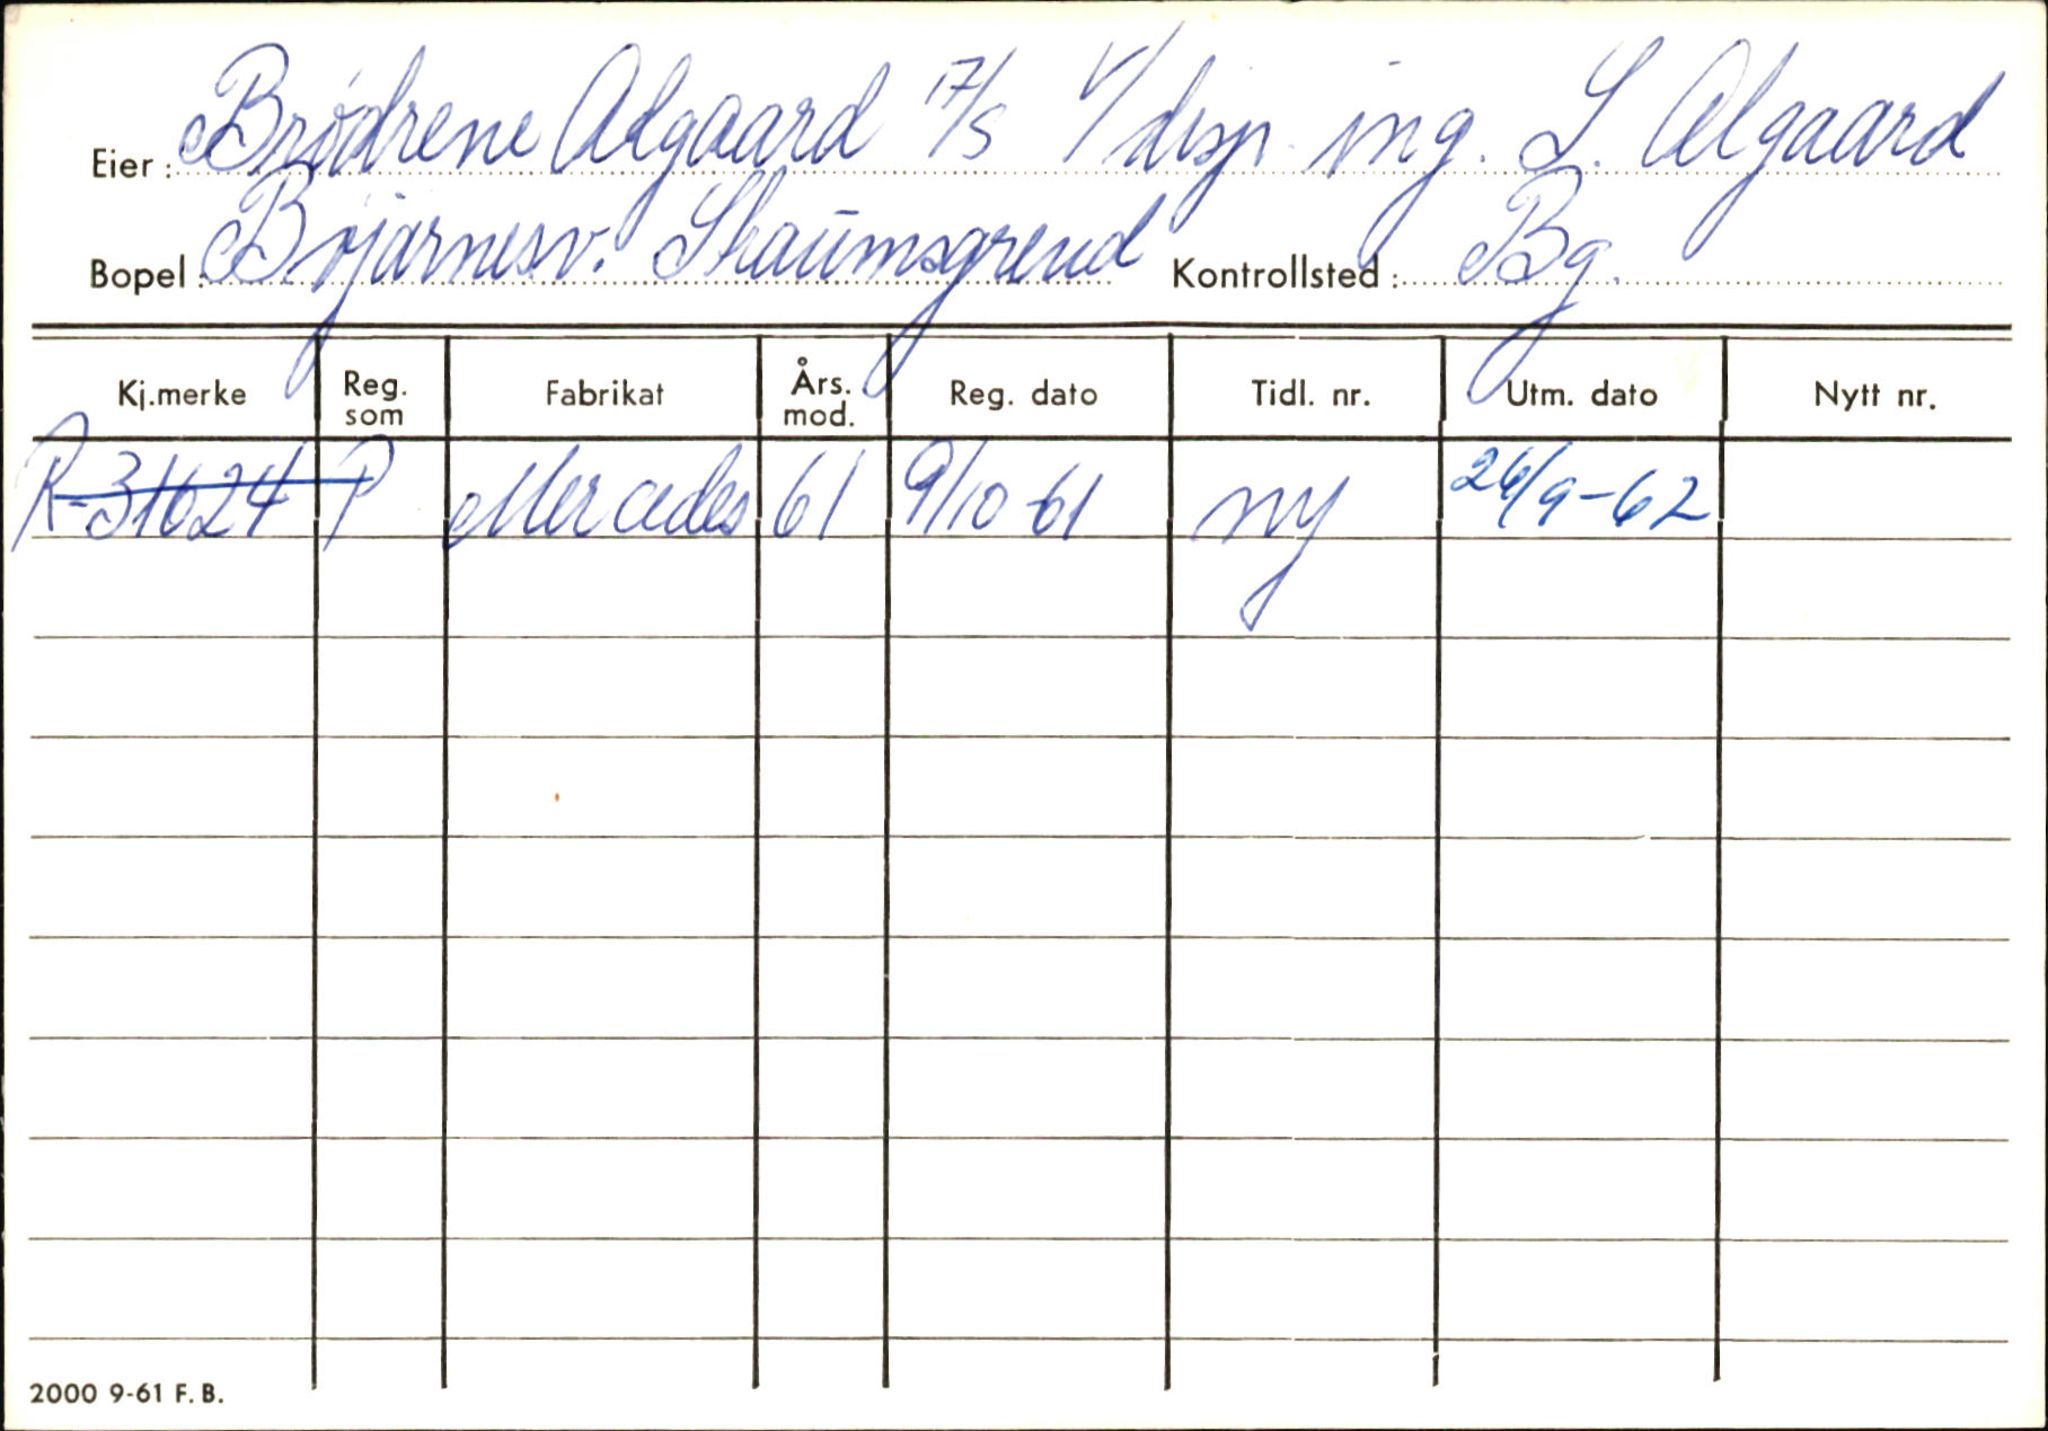 Eier: Brødrene Algaard A/S v/disp. ing. S. Algaard
Bopel: Bøjarnesv. Straumsgrend Kontrollsted: Bg.
Kj.merke Reg. som Fabrikat Års. mod. Reg. dato Tidl. nr. Utm. dato Nytt nr.
R-31624 P Mercedes 61 9/10-61 ny 26/9-62
2000 9-61 F.B.